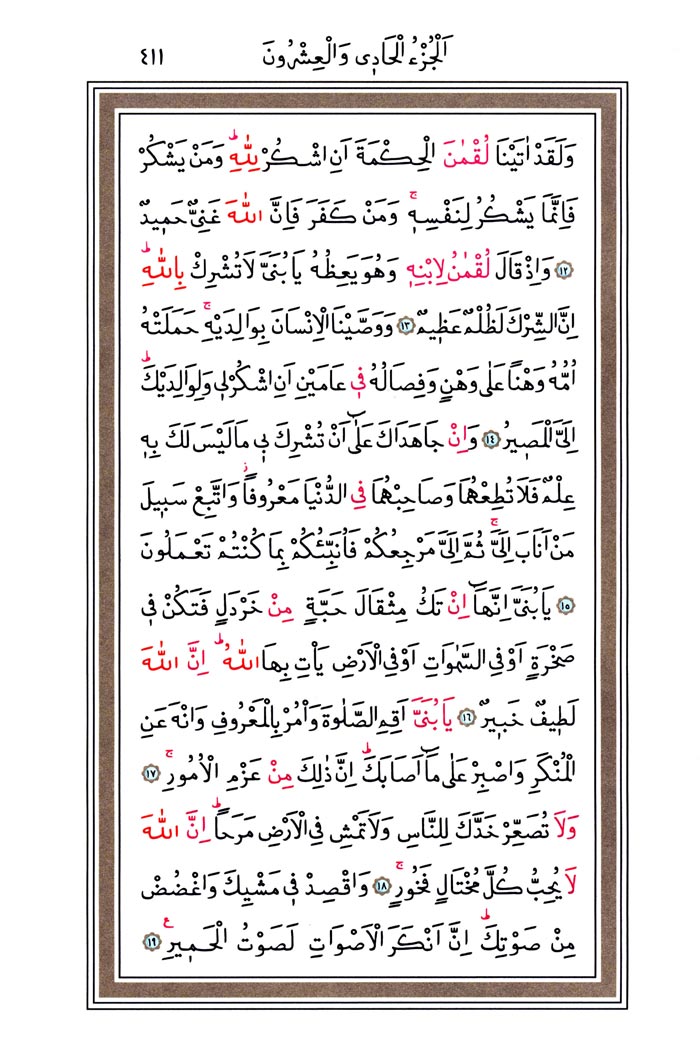 اَلْجُزْءُ الْحَادِي وَالْعِشْرُونَ ٤١١
وَلَقَدْ اٰتَيْنَا لُقْمٰنَ الْحِكْمَةَ اَنِ اشْكُرْ لِلّٰهِۜ وَمَنْ يَشْكُرْ
فَاِنَّمَا يَشْكُرُ لِنَفْسِه۪ۚ وَمَنْ كَفَرَ فَاِنَّ اللّٰهَ غَنِيٌّ حَم۪يدٌ
﴿١٢﴾ وَاِذْ قَالَ لُقْمٰنُ لِابْنِه۪ وَهُوَ يَعِظُهُ يَا بُنَيَّ لَا تُشْرِكْ بِاللّٰهِۜ
اِنَّ الشِّرْكَ لَظُلْمٌ عَظ۪يمٌ ﴿١٣﴾ وَوَصَّيْنَا الْاِنْسَانَ بِوَالِدَيْهِۚ حَمَلَتْهُ
اُمُّهُ وَهْنًا عَلٰى وَهْنٍ وَفِصَالُهُ ف۪ي عَامَيْنِ اَنِ اشْكُرْ ل۪ي وَلِوَالِدَيْكَۜ
اِلَيَّ الْمَص۪يرُ ﴿١٤﴾ وَاِنْ جَاهَدَاكَ عَلٰٓى اَنْ تُشْرِكَ ب۪ي مَا لَيْسَ لَكَ بِه۪
عِلْمٌ فَلَا تُطِعْهُمَا وَصَاحِبْهُمَا فِي الدُّنْيَا مَعْرُوفًاۘ وَاتَّبِعْ سَب۪يلَ
مَنْ اَنَابَ اِلَيَّۚ ثُمَّ اِلَيَّ مَرْجِعُكُمْ فَاُنَبِّئُكُمْ بِمَا كُنْتُمْ تَعْمَلُونَ
﴿١٥﴾ يَا بُنَيَّ اِنَّهَٓا اِنْ تَكُ مِثْقَالَ حَبَّةٍ مِنْ خَرْدَلٍ فَتَكُنْ ف۪ي
صَخْرَةٍ اَوْ فِي السَّمٰوَاتِ اَوْ فِي الْاَرْضِ يَأْتِ بِهَا اللّٰهُۜ اِنَّ اللّٰهَ
لَط۪يفٌ خَب۪يرٌ ﴿١٦﴾ يَا بُنَيَّ اَقِمِ الصَّلٰوةَ وَأْمُرْ بِالْمَعْرُوفِ وَانْهَ عَنِ
الْمُنْكَرِ وَاصْبِرْ عَلٰى مَٓا اَصَابَكَۜ اِنَّ ذٰلِكَ مِنْ عَزْمِ الْاُمُورِۚ ﴿١٧﴾
وَلَا تُصَعِّرْ خَدَّكَ لِلنَّاسِ وَلَا تَمْشِ فِي الْاَرْضِ مَرَحًاۜ اِنَّ اللّٰهَ
لَا يُحِبُّ كُلَّ مُخْتَالٍ فَخُورٍۚ ﴿١٨﴾ وَاقْصِدْ ف۪ي مَشْيِكَ وَاغْضُضْ
مِنْ صَوْتِكَۜ اِنَّ اَنْكَرَ الْاَصْوَاتِ لَصَوْتُ الْحَم۪يرِ۟ ﴿١٩﴾